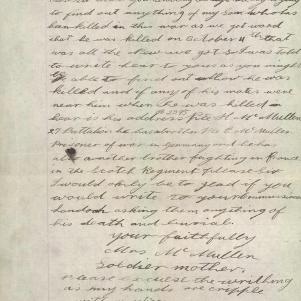 to find out anything of my son who has
ben killed in this war as we got word
that he was killed on October 4th that
was all the New we got & I was told
to write hear to you as you might
be able to find out how he was
killed and if any of his mates were
near him when he was killed
hear is his address Pte H. McMullen
27 Battalion he has a brother Pte E McMullen
Prisoner of war in Germany and he has
another brother fighting in France
in the Scotch Regiment please Sir
I would only be to glad if you
would write to your commission
London asking them anything of
his death and burial.
Your faithfully
Mrs McMullen
Soldier mother.
please excuse the writing
as my hands are cripple